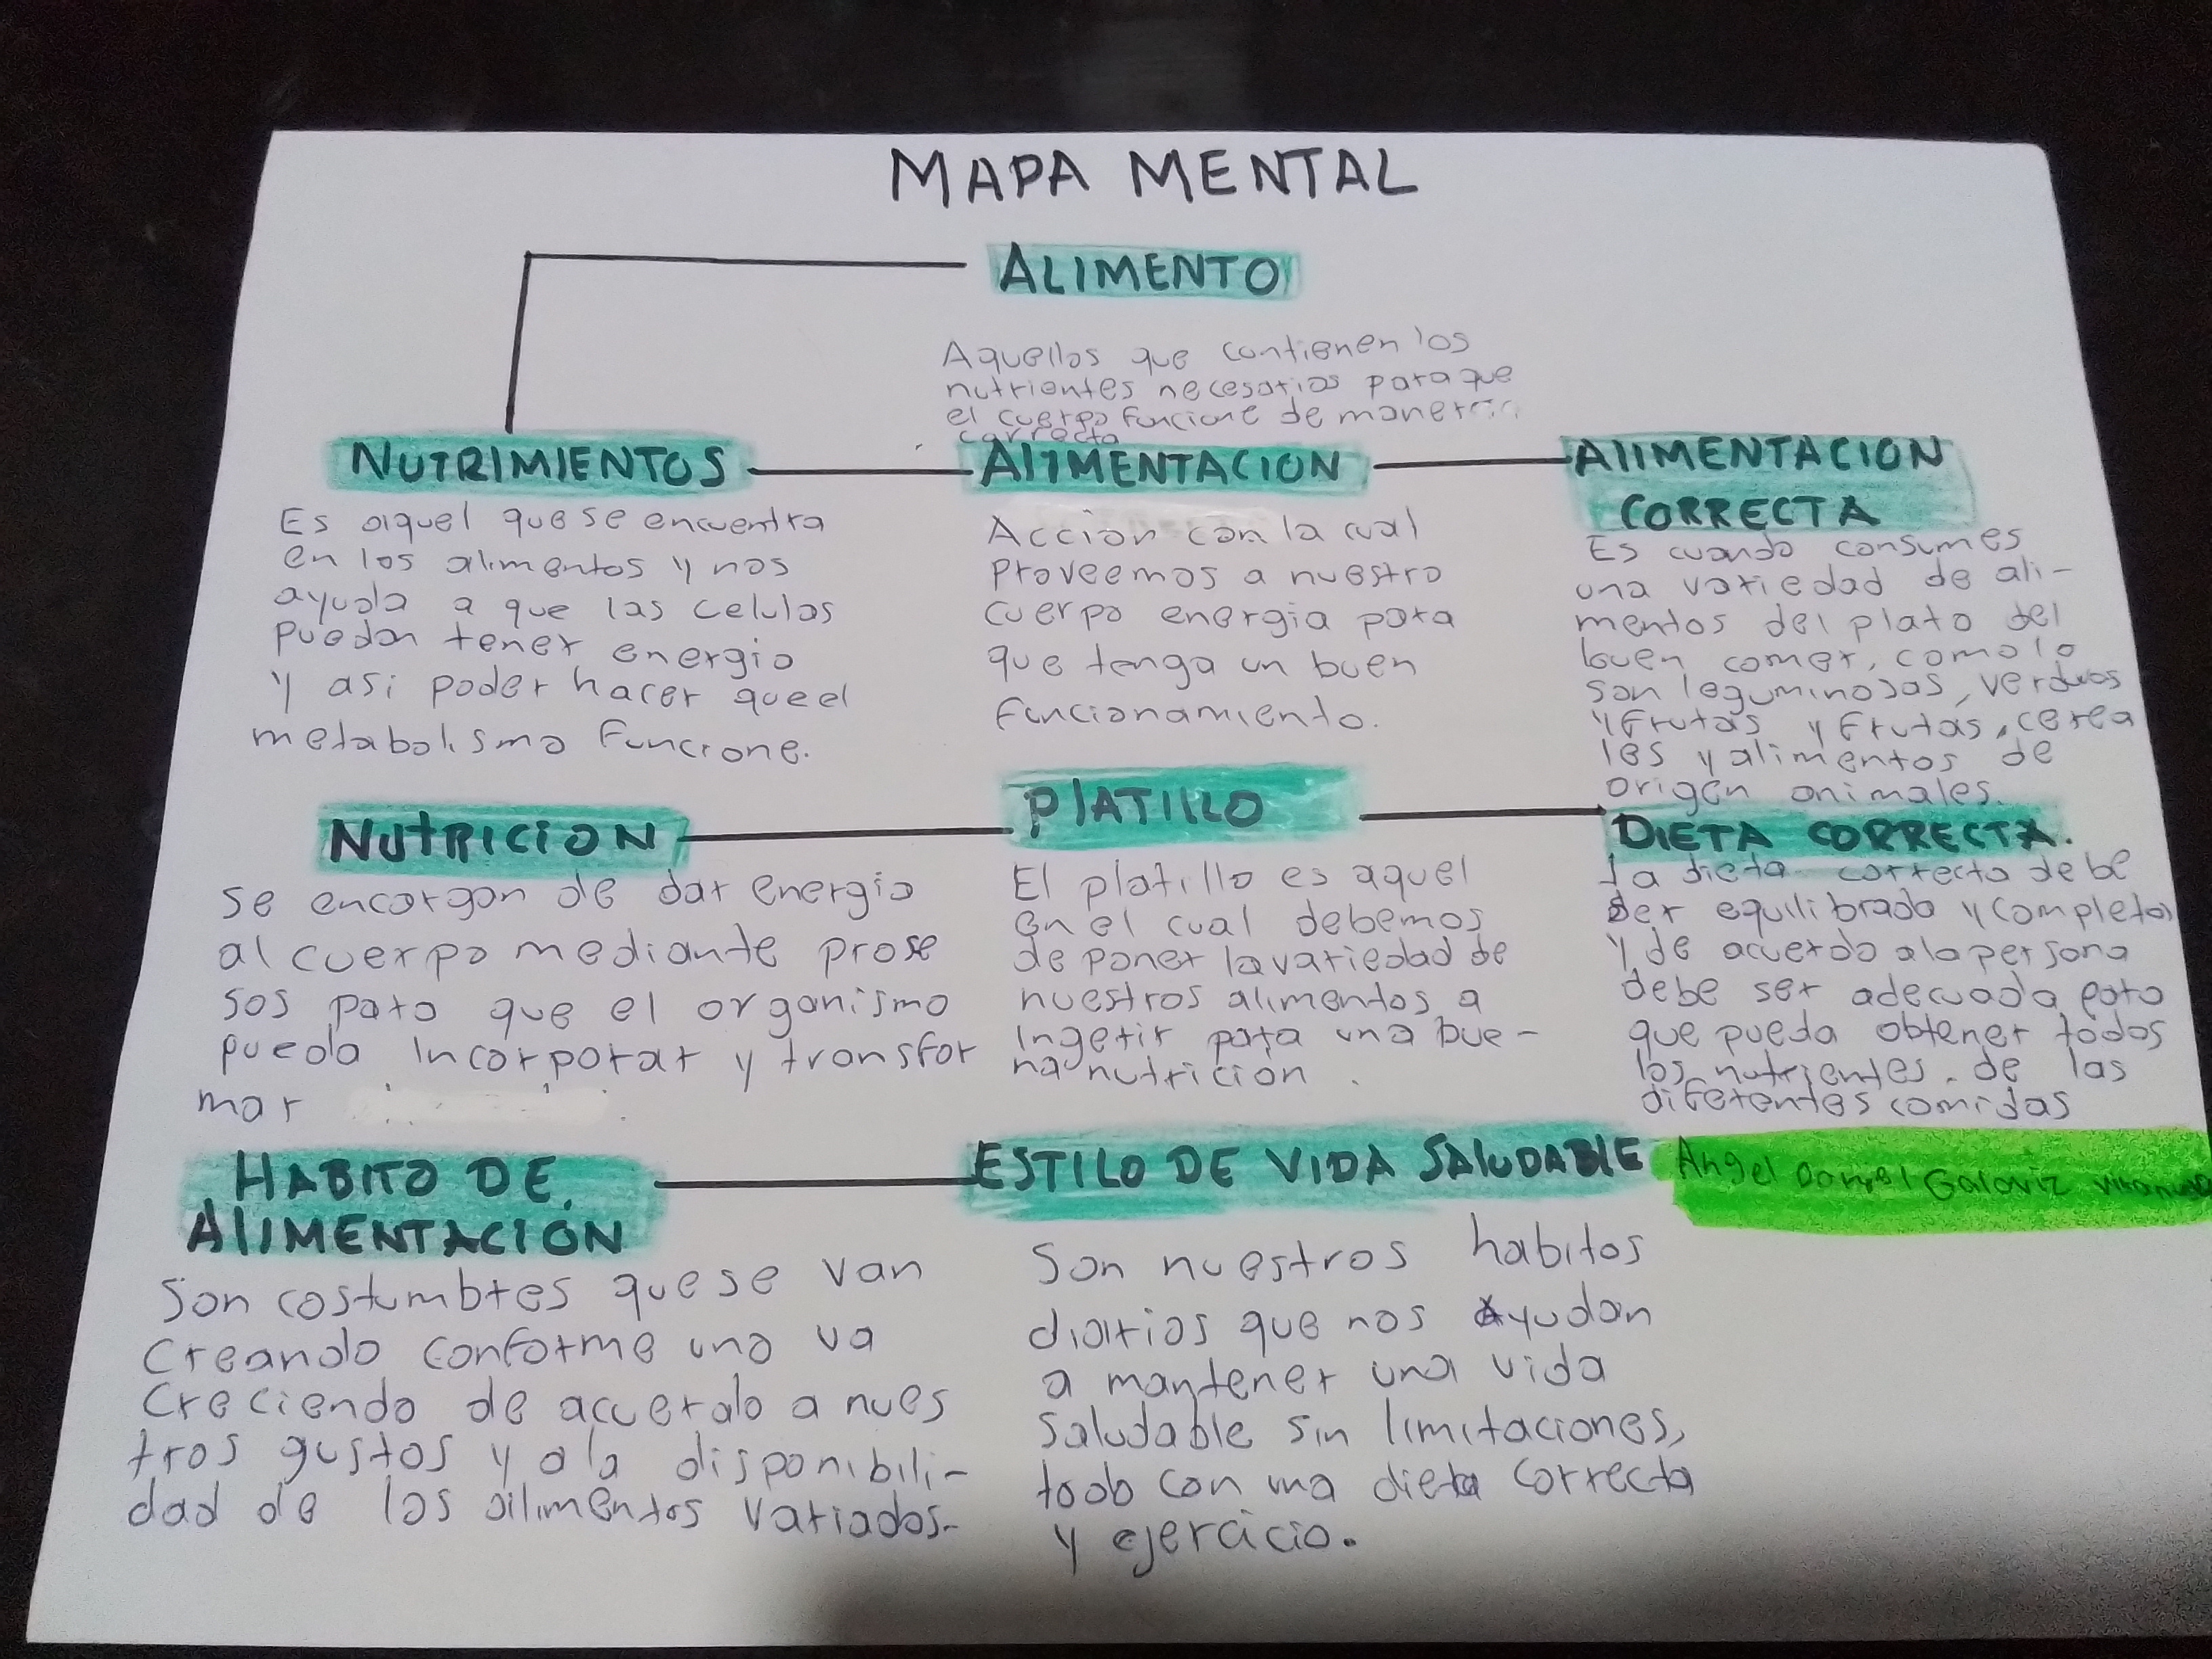 MAPA MENTAL
ALIMENTO
Aquellos que contienen los
nutrientes necesarios para que
el cuerpo funcione de manera
correcta
NUTRIMIENTOS
Es aquel que se encuentra
en los alimentos y nos
ayuda a que las celulas
puedan tener energia
y asi poder hacer que el
metabolismo funcione.
AlIMENTACION
Accion con la cual
proveemos a nuestro
cuerpo energia para
que tenga un buen
funcionamiento.
AlIMENTACION
CORRECTA
Es cuando consumes
una variedad de ali-
mentos del plato del
buen comer, como lo
son leguminosas, verduras
y frutas y frutas, cerea
les y alimentos de
origen animales.
NUTRICION
se encargan de dar energia
al cuerpo mediante prose
sos para que el organismo
pueda incorporar y transfor
mar
PlATIllO
El platillo es aquel
en el cual debemos
de poner la variedad de
nuestros alimentos a
Ingerir para una bue-
na nutricion.
DIETA CORRECTA.
La dieta correcta debe
ser equilibrada y completa
y de acuerdo a la persona
debe ser adecuada para
que pueda obtener todos
los nutrientes. de las
diferentes comidas
HABITO DE
AlIMENTACIÓN
Son costumbres que se van
Creando conforme uno va
Creciendo de acuerdo a nues
tros gustos y a la disponibili-
dad de los alimentos variados.
ESTILO DE VIDA SAluDABlE
Son nuestros habitos
diarios que nos Ayudan
a mantener una vida
saludable sin limitaciones,
todo con una dieta correcta
y ejercicio.
Angel Daniel Galaviz